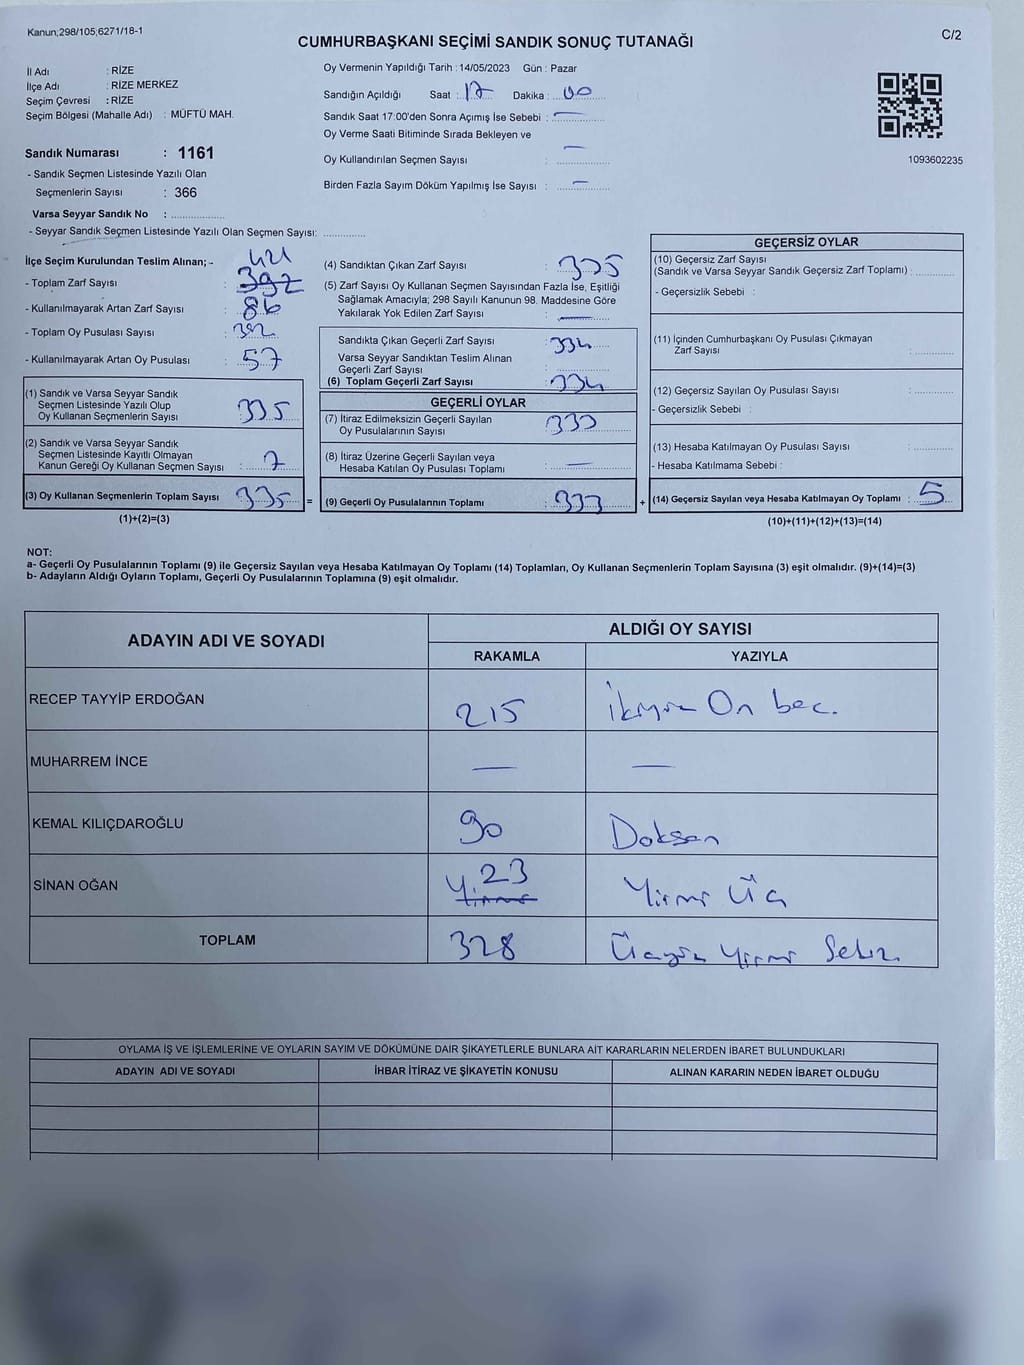 Kanun;298/105;6271/18-1
C/2
CUMHURBAŞKANI SEÇİMİ SANDIK SONUÇ TUTANAĞI
İl Adı : RİZE
İlçe Adı : RİZE MERKEZ
Seçim Çevresi : RİZE
Seçim Bölgesi (Mahalle Adı) : MÜFTÜ MAH.
Sandık Numarası : 1161
- Sandık Seçmen Listesinde Yazılı Olan
Seçmenlerin Sayısı : 366
Varsa Seyyar Sandık No :
- Seyyar Sandık Seçmen Listesinde Yazılı Olan Seçmen Sayısı:
Oy Vermenin Yapıldığı Tarih : 14/05/2023 Gün : Pazar
Sandığın Açıldığı Saat : 17 Dakika : 00
Sandık Saat 17:00'den Sonra Açımış İse Sebebi : —
Oy Verme Saati Bitiminde Sırada Bekleyen ve
Oy Kullandırılan Seçmen Sayısı : —
Birden Fazla Sayım Döküm Yapılmış İse Sayısı : —
1093602235
İlçe Seçim Kurulundan Teslim Alınan; - 421
- Toplam Zarf Sayısı : 392
- Kullanılmayarak Artan Zarf Sayısı : 86
- Toplam Oy Pusulası Sayısı : 392
- Kullanılmayarak Artan Oy Pusulası : 57
(1) Sandık ve Varsa Seyyar Sandık
Seçmen Listesinde Yazılı Olup
Oy Kullanan Seçmenlerin Sayısı : 335
(2) Sandık ve Varsa Seyyar Sandık
Seçmen Listesinde Kayıtlı Olmayan
Kanun Gereği Oy Kullanan Seçmen Sayısı :
(3) Oy Kullanan Seçmenlerin Toplam Sayısı 335 =
(1)+(2)=(3)
(4) Sandıktan Çıkan Zarf Sayısı : 335
(5) Zarf Sayısı Oy Kullanan Seçmen Sayısından Fazla İse, Eşitliği
Sağlamak Amacıyla; 298 Sayılı Kanunun 98. Maddesine Göre
Yakılarak Yok Edilen Zarf Sayısı : —
Sandıkta Çıkan Geçerli Zarf Sayısı : 334
Varsa Seyyar Sandıktan Teslim Alınan
Geçerli Zarf Sayısı :
(6) Toplam Geçerli Zarf Sayısı : 334
GEÇERLİ OYLAR
(7) İtiraz Edilmeksizin Geçerli Sayılan
Oy Pusulalarının Sayısı : 333
(8) İtiraz Üzerine Geçerli Sayılan veya
Hesaba Katılan Oy Pusulası Toplamı : —
(9) Geçerli Oy Pusulalarının Toplamı : 333 +
GEÇERSİZ OYLAR
(10) Geçersiz Zarf Sayısı
(Sandık ve Varsa Seyyar Sandık Geçersiz Zarf Toplamı) :
- Geçersizlik Sebebi :
(11) İçinden Cumhurbaşkanı Oy Pusulası Çıkmayan
Zarf Sayısı :
(12) Geçersiz Sayılan Oy Pusulası Sayısı :
- Geçersizlik Sebebi :
(13) Hesaba Katılmayan Oy Pusulası Sayısı :
- Hesaba Katılmama Sebebi :
(14) Geçersiz Sayılan veya Hesaba Katılmayan Oy Toplamı : 5
(10)+(11)+(12)+(13)=(14)
NOT:
a- Geçerli Oy Pusulalarının Toplamı (9) ile Geçersiz Sayılan veya Hesaba Katılmayan Oy Toplamı (14) Toplamları, Oy Kullanan Seçmenlerin Toplam Sayısına (3) eşit olmalıdır. (9)+(14)=(3)
b- Adayların Aldığı Oyların Toplamı, Geçerli Oy Pusulalarının Toplamına (9) eşit olmalıdır.
ADAYIN ADI VE SOYADI
ALDIĞI OY SAYISI
RAKAMLA YAZIYLA
RECEP TAYYİP ERDOĞAN 215 İkiyüz On beş.
MUHARREM İNCE — —
KEMAL KILIÇDAROĞLU 90 Doksan
SİNAN OĞAN Yirmi 23 Yirmi Üç
TOPLAM 328 Üçyüz Yirmi Sekiz.
OYLAMA İŞ VE İŞLEMLERİNE VE OYLARIN SAYIM VE DÖKÜMÜNE DAİR ŞİKAYETLERLE BUNLARA AİT KARARLARIN NELERDEN İBARET BULUNDUKLARI
ADAYIN ADI VE SOYADI İHBAR İTİRAZ VE ŞİKAYETİN KONUSU ALINAN KARARIN NEDEN İBARET OLDUĞU